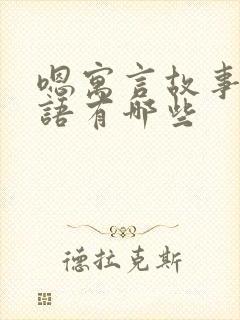 嗯寓言故事
語有哪些
德拉克斯